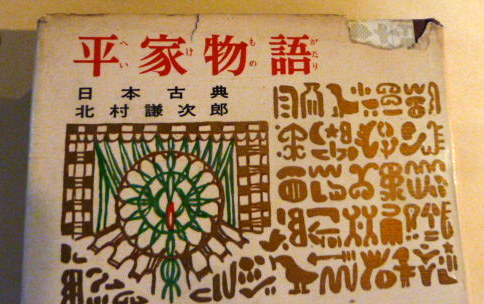 平家物語
へいけものがたり
日本古典
北村謙次郎